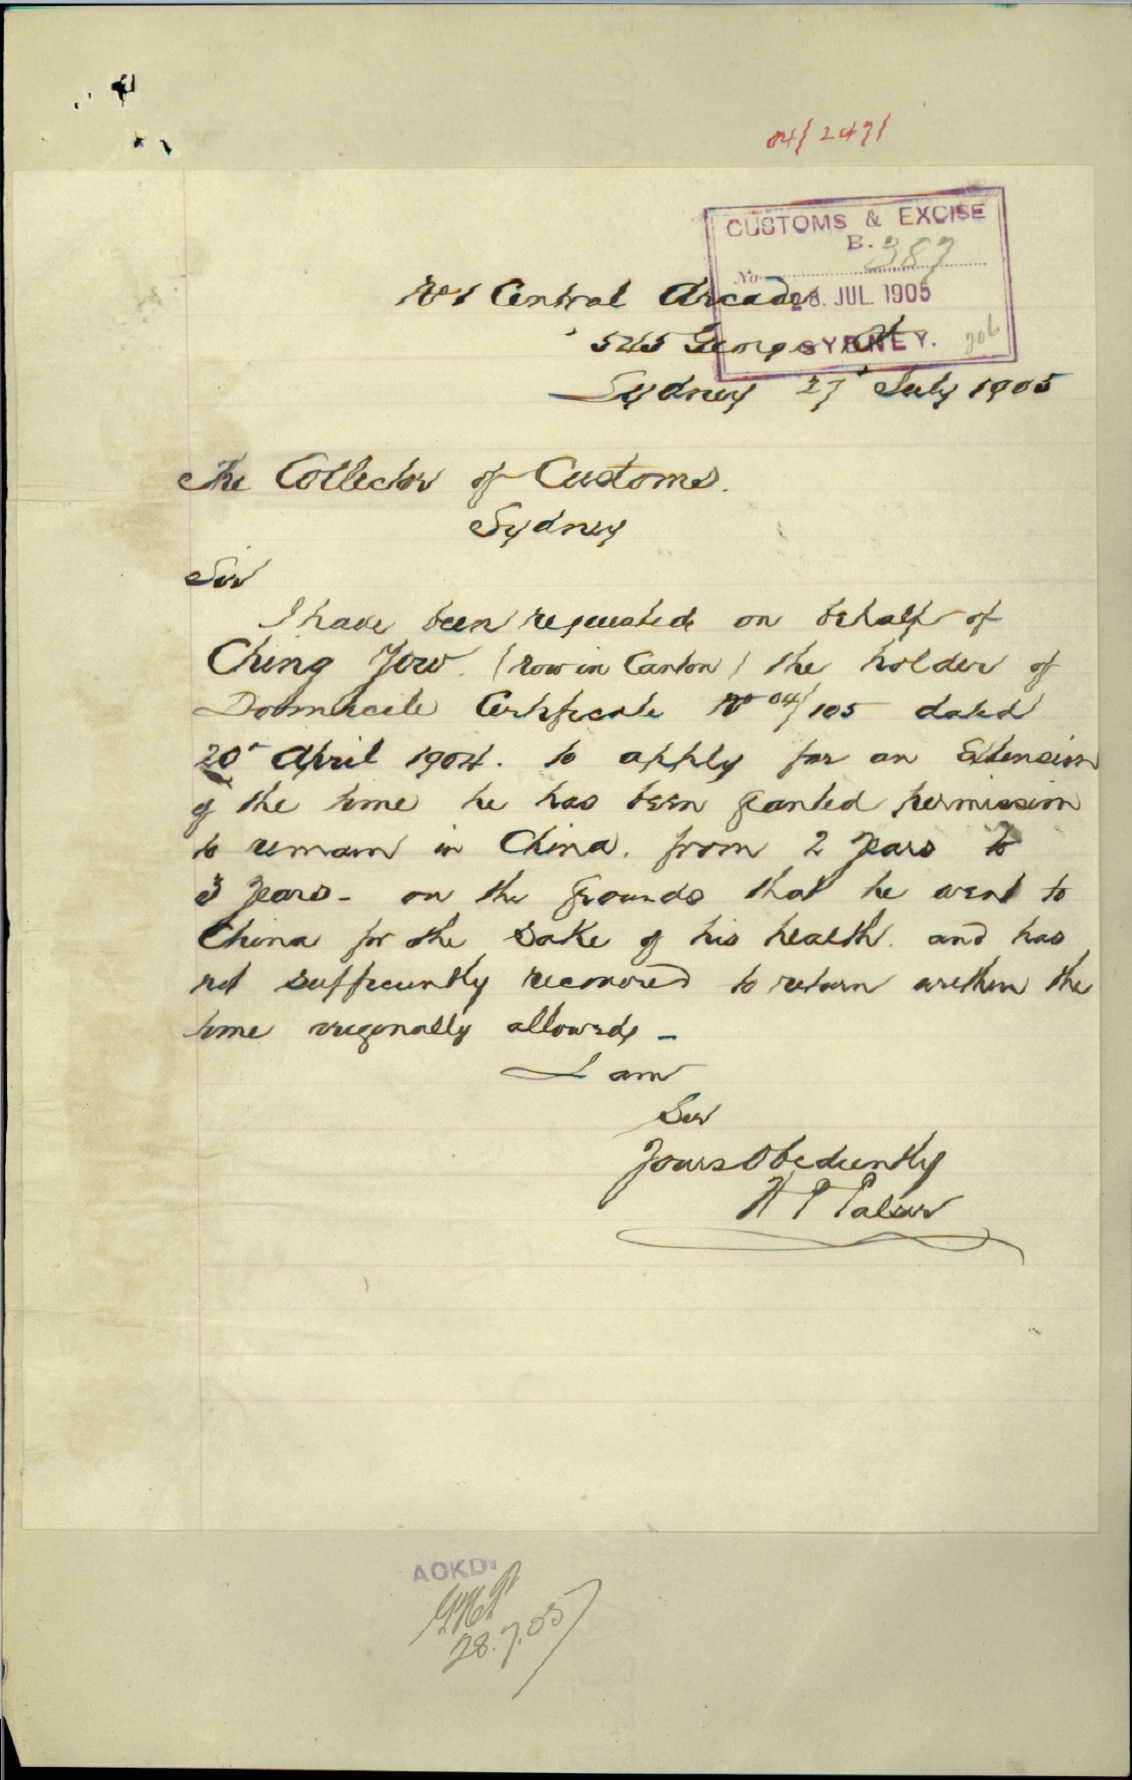 04/2471
CUSTOMS & EXCISE
B.
No 387
28. JUL 1905
SYDNEY.
No 1 Central Arcade
545 George St
Sydney 27 July 1905
The Collector of Customs.
Sydney
Sir
I have been requested on behalf of
Ching Yow. (now in Canton) the holder of
Dommicile Certificate No 04/105 dated
20 April 1904. to apply for an Extension
of the time he has been granted permission
to remain in China. from 2 years to
3 years - on the grounds that he went to
China for the sake of his health. and has
not sufficiently recovered to return within the
time originally allowed -
I am
Sir
Yours Obediently
ACKD.
28.7.05